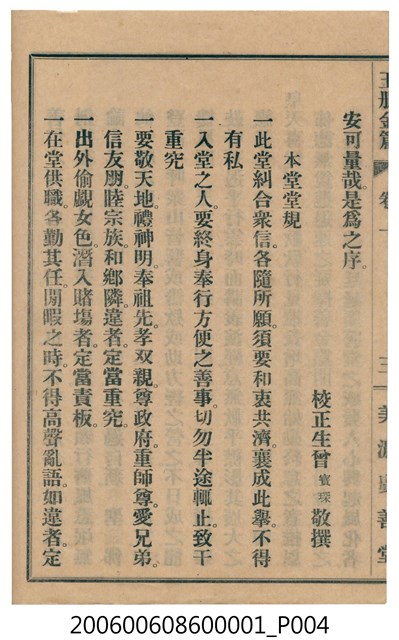 玉册金篇 卷一 三 美源興善堂
安可量哉。是爲之序。
校正生曾寶琛敬撰
本堂堂規
一此堂糾合衆信。各隨所願。須要和衷共濟。襄成此舉。不得
有私
一入堂之人。要終身奉行方便之善事。切勿半途輒止。致干
重究
一要敬天地。禮神明。奉祖先。孝双親。尊政府。重師尊。愛兄弟。
信友朋。睦宗族。和鄉隣。違者定當重究。
一出外偷覷女色。潛入賭塲者。定當責板。
一在堂供職。各勤其任。閒暇之時。不得高聲亂語。如違者定
200600608600001_P004